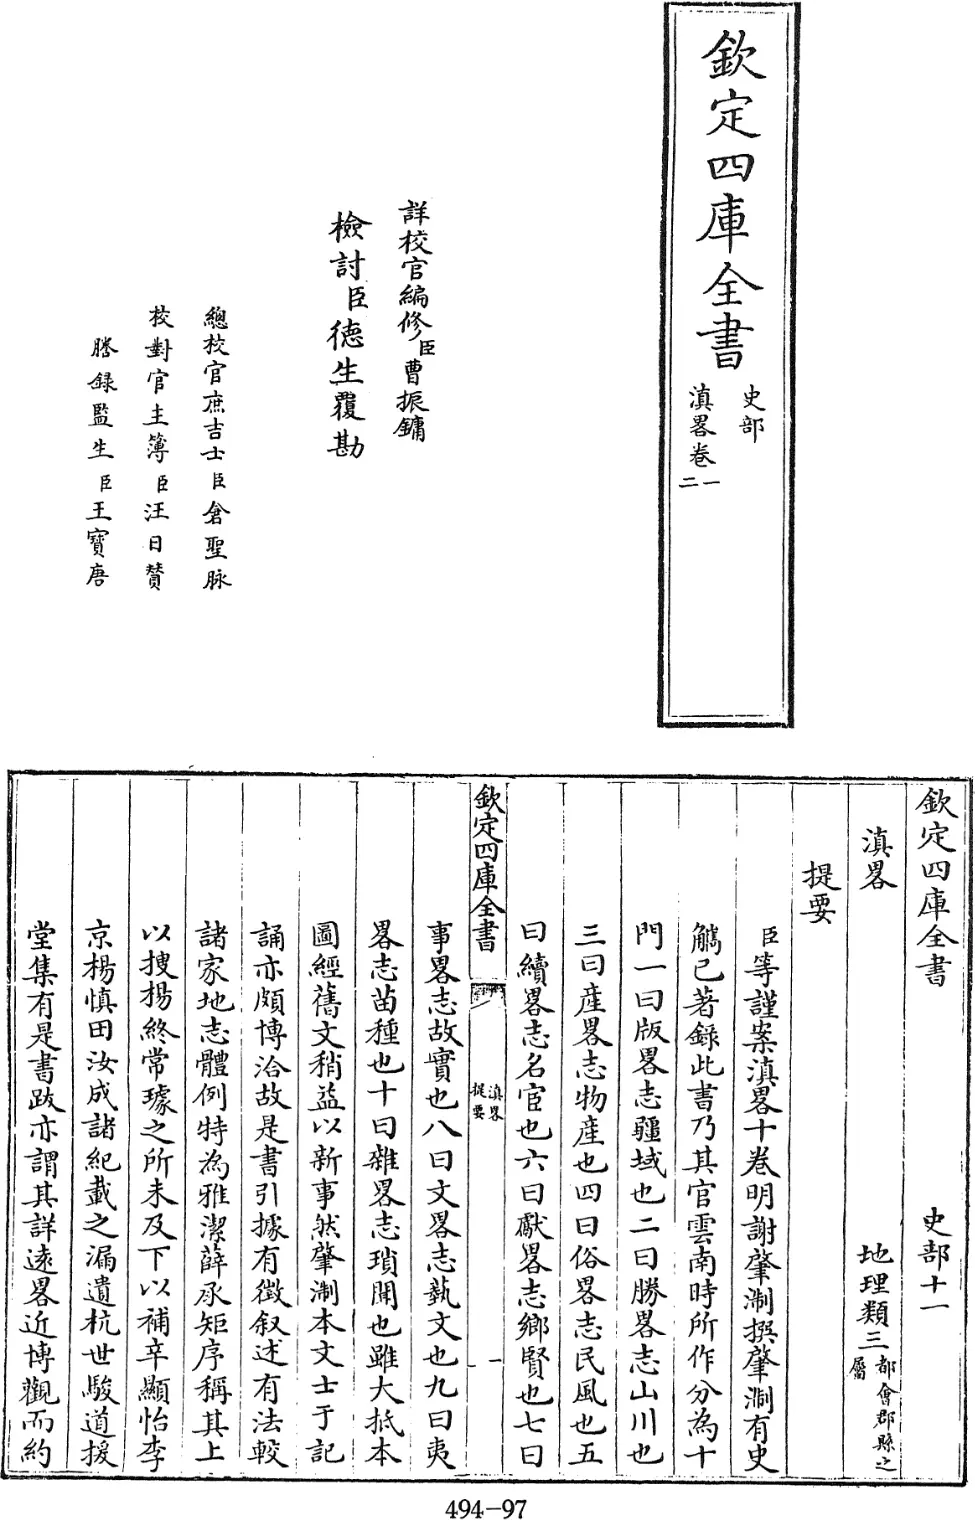 欽定四庫全書
史部
滇畧卷一
二
詳校官編修臣曹振鏞
檢討臣德生覆勘
總校官庶吉士臣倉聖脉
校對官主簿臣汪日贊
謄錄監生臣王寶唐
欽定四庫全書 史部十一
滇畧 地理類三都會郡縣之屬
提要
臣等謹案滇畧十卷明謝肇淛撰肇淛有史
觿已著錄此書乃其官雲南時所作分為十
門一曰版畧志疆域也二曰勝畧志山川也
三曰産畧志物産也四曰俗畧志民風也五
曰續畧志名宦也六曰獻畧志鄉賢也七曰
欽定四庫全書 滇畧提要 一
事畧志故實也八曰文畧志藝文也九曰夷
畧志苗種也十曰雜畧志瑣聞也雖大抵本
圖經舊文稍益以新事然肇淛本文士于記
誦亦頗博洽故是書引據有徵叙述有法較
諸家地志體例特為雅潔薛承矩序稱其上
以搜揚終常璩之所未及下以補辛顯怡李
京楊慎田汝成諸紀載之漏遺杭世駿道援
堂集有是書跋亦謂其詳逺畧近博觀而約
494-97